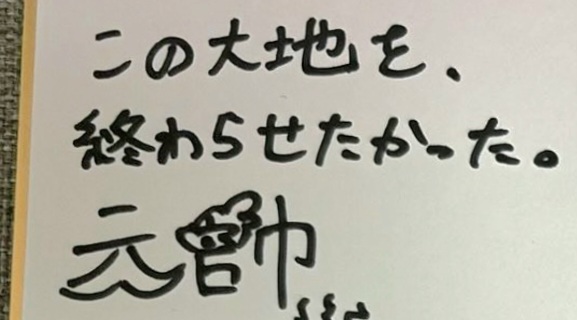 この大地を、
終わらせたかった。
元帥